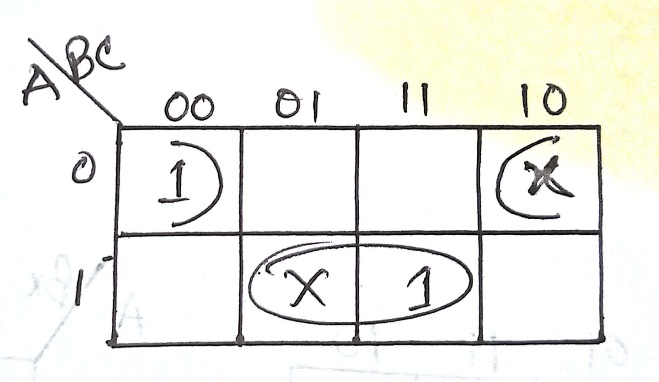 A BC
00 01 11 10
0 1 X
1 X 1